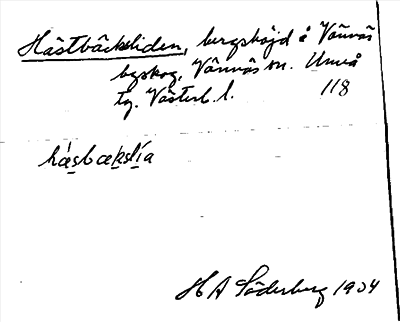 Hästbäcksliden, bergshöjd å Vännäs
byskog, Vännäs sn. Umeå
tg. Västerb. l. 118
hásbækslía
H A Söderberg 1934